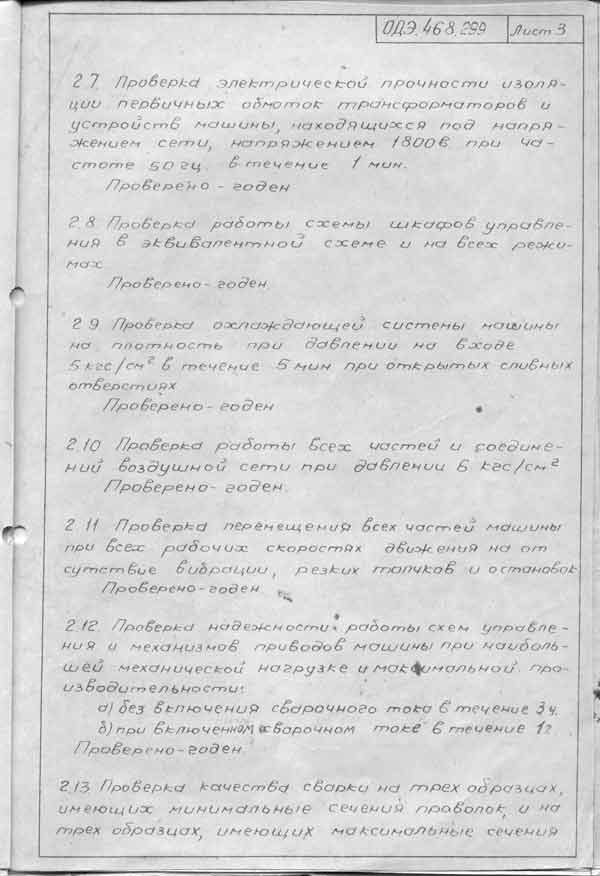 ОДЭ.468.299 Лист 3
2.7 Проверка электрической прочности изоля-
ции первичных обмоток трансформаторов и
устройств машины, находящихся под напря-
жением сети, напряжением 1800в при ча-
стоте 50гц. в течение 1 мин.
Проверено - годен
2.8 Проверка работы схемы шкафов управле-
ния в эквивалентной схеме и на всех режи-
мах
Проверено- годен.
2.9 Проверка охлаждающей системы машины
на плотность при давлении на входе
5кгс/см² в течение 5мин при открытых сливных
отверстиях
Проверено- годен
2.10 Проверка работы всех частей и соедине-
ний воздушной сети при давлении 6 кгс/см²
Проверено- годен.
2.11 Проверка перемещения всех частей машины
при всех рабочих скоростях движения на от
сутствие вибрации, резких толчков и остановок
Проверено-годен.
2.12. Проверка надежности работы схем управле-
ния и механизмов приводов машины при наиболь-
шей механической нагрузке и максимальной про-
изводительности:
а) без включения сварочного тока в течение 3ч.
б) при включенном сварочном токе в течение 1г
Проверено-годен.
2.13. Проверка качества сварки на трех образцах,
имеющих минимальные сечения проволок, и на
трех образцах, имеющих максимальные сечения